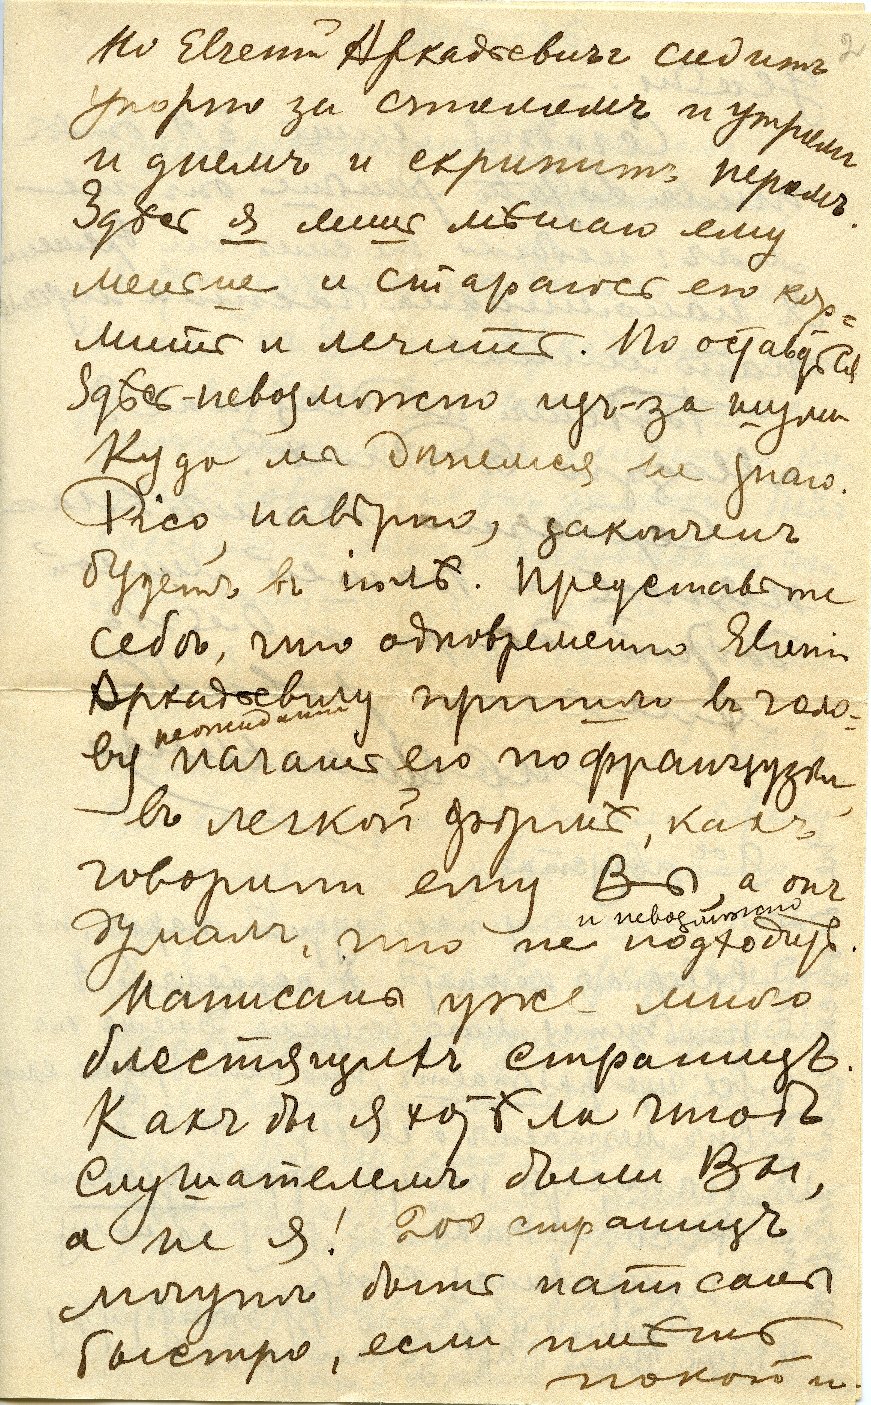 2
Но Евгенiй Аркадьевичъ сидитъ
упорно за столомъ и утромъ
и днемъ и скрипитъ перомъ.
Здѣсь я лишь мѣшаю ему
меньше и стараюсь его кор=
мить и лечить. Но оставаться
здѣсь - невозможно изъ-за шума
Куда мы дѣнемся не знаю.
Pico, навѣрно, законченъ
будетъ въ iюлѣ. Представьте
себѣ, что одновременно Евгенiю
Аркадьевичу пришло въ голо=
ву неожиданно начать его по французски,
въ легкой формѣ, какъ
говорили ему Вы, а онъ
думалъ, что не подходитъ и невозможно.
Написаны уже много
блестящихъ страницъ.
Какъ бы я хотѣла чтобъ
слушателемъ были Вы,
а не я! 200 страницъ
могутъ быть написаны
быстро, если имѣть
покой и